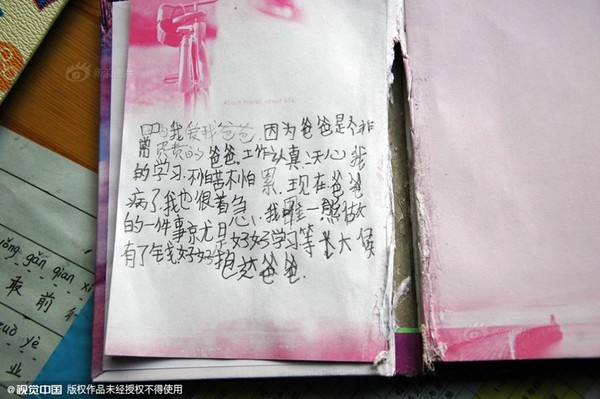 About friend, about life
我爱我爸爸,因为爸爸是个非
常尽责的爸爸.工作认真.关心我
的学习.不怕苦不怕累.现在爸爸
病了我也很着急,我唯一能做
的一件事就是好好学习等长大候
有了钱好好抱达爸爸.
gǎn qián
敢 前
yè
业
@视觉中国 版权作品未经授权不得使用